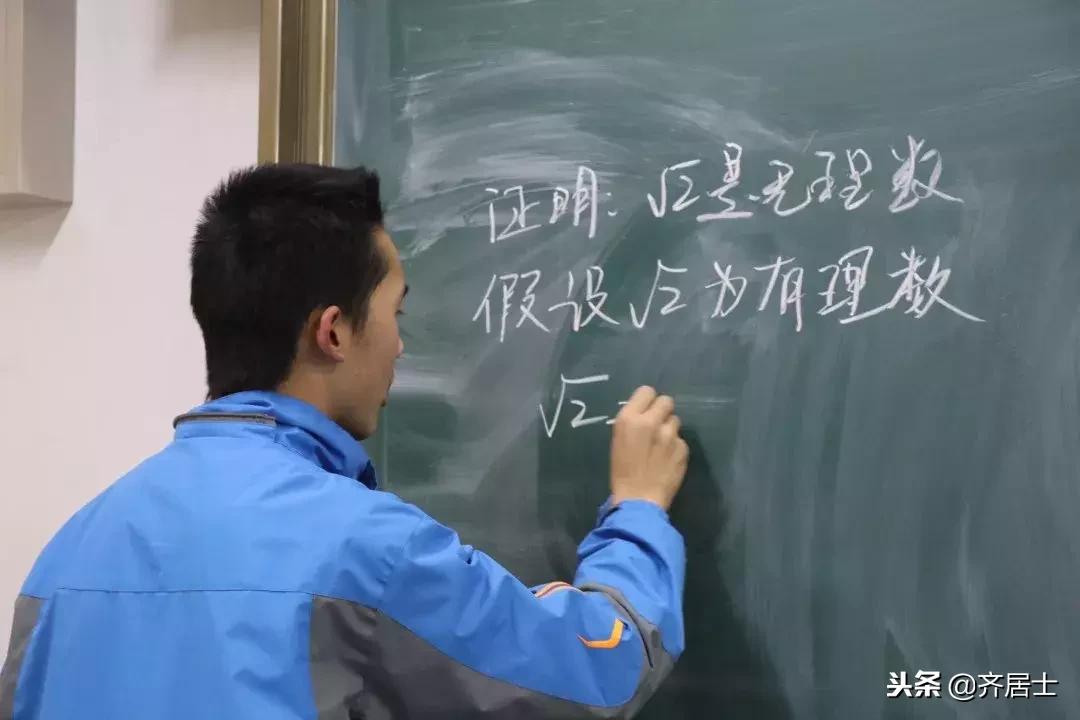 证明:√2是无理数
假设√2为有理数
√2=
头条 @齐居士